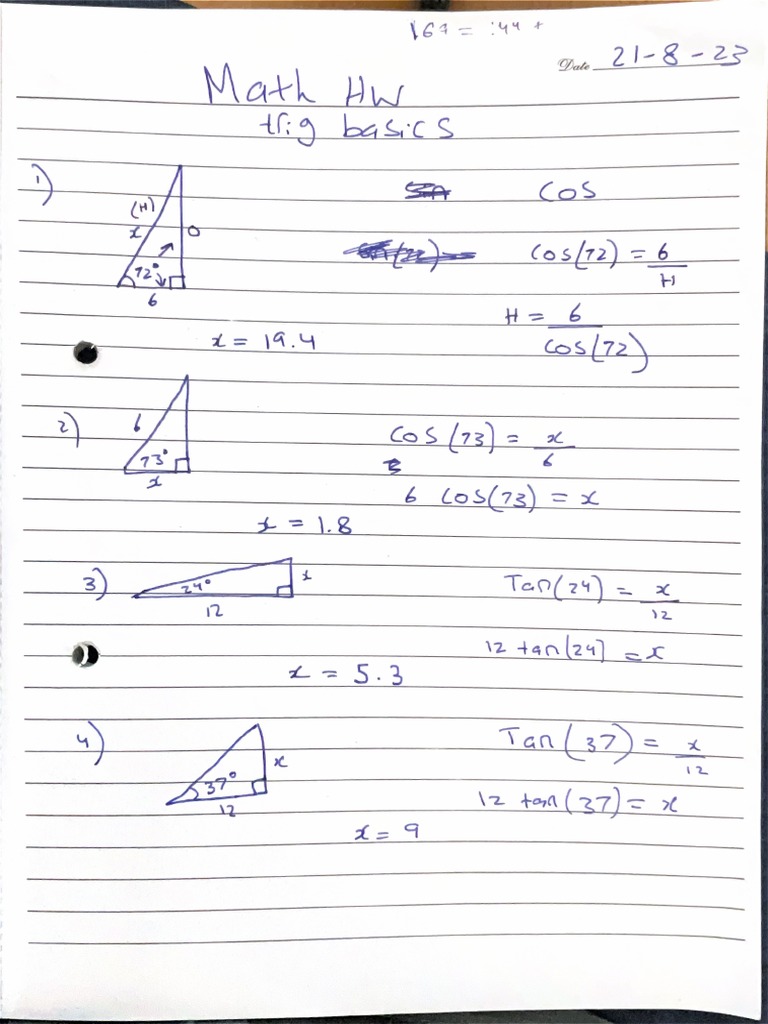 Date 21-8-23
Math HW
trig basics
1)
cos
(H)
x
O
72°
6
cos(72) = 6/H
H = 6/cos(72)
x = 19.4
2)
6
73°
x
cos(73) = x/6
6 cos(73) = x
x = 1.8
3)
24°
x
12
Tan(24) = x/12
12 tan(24) = x
x = 5.3
4)
37°
x
12
Tan(37) = x/12
12 tan(37) = x
x = 9